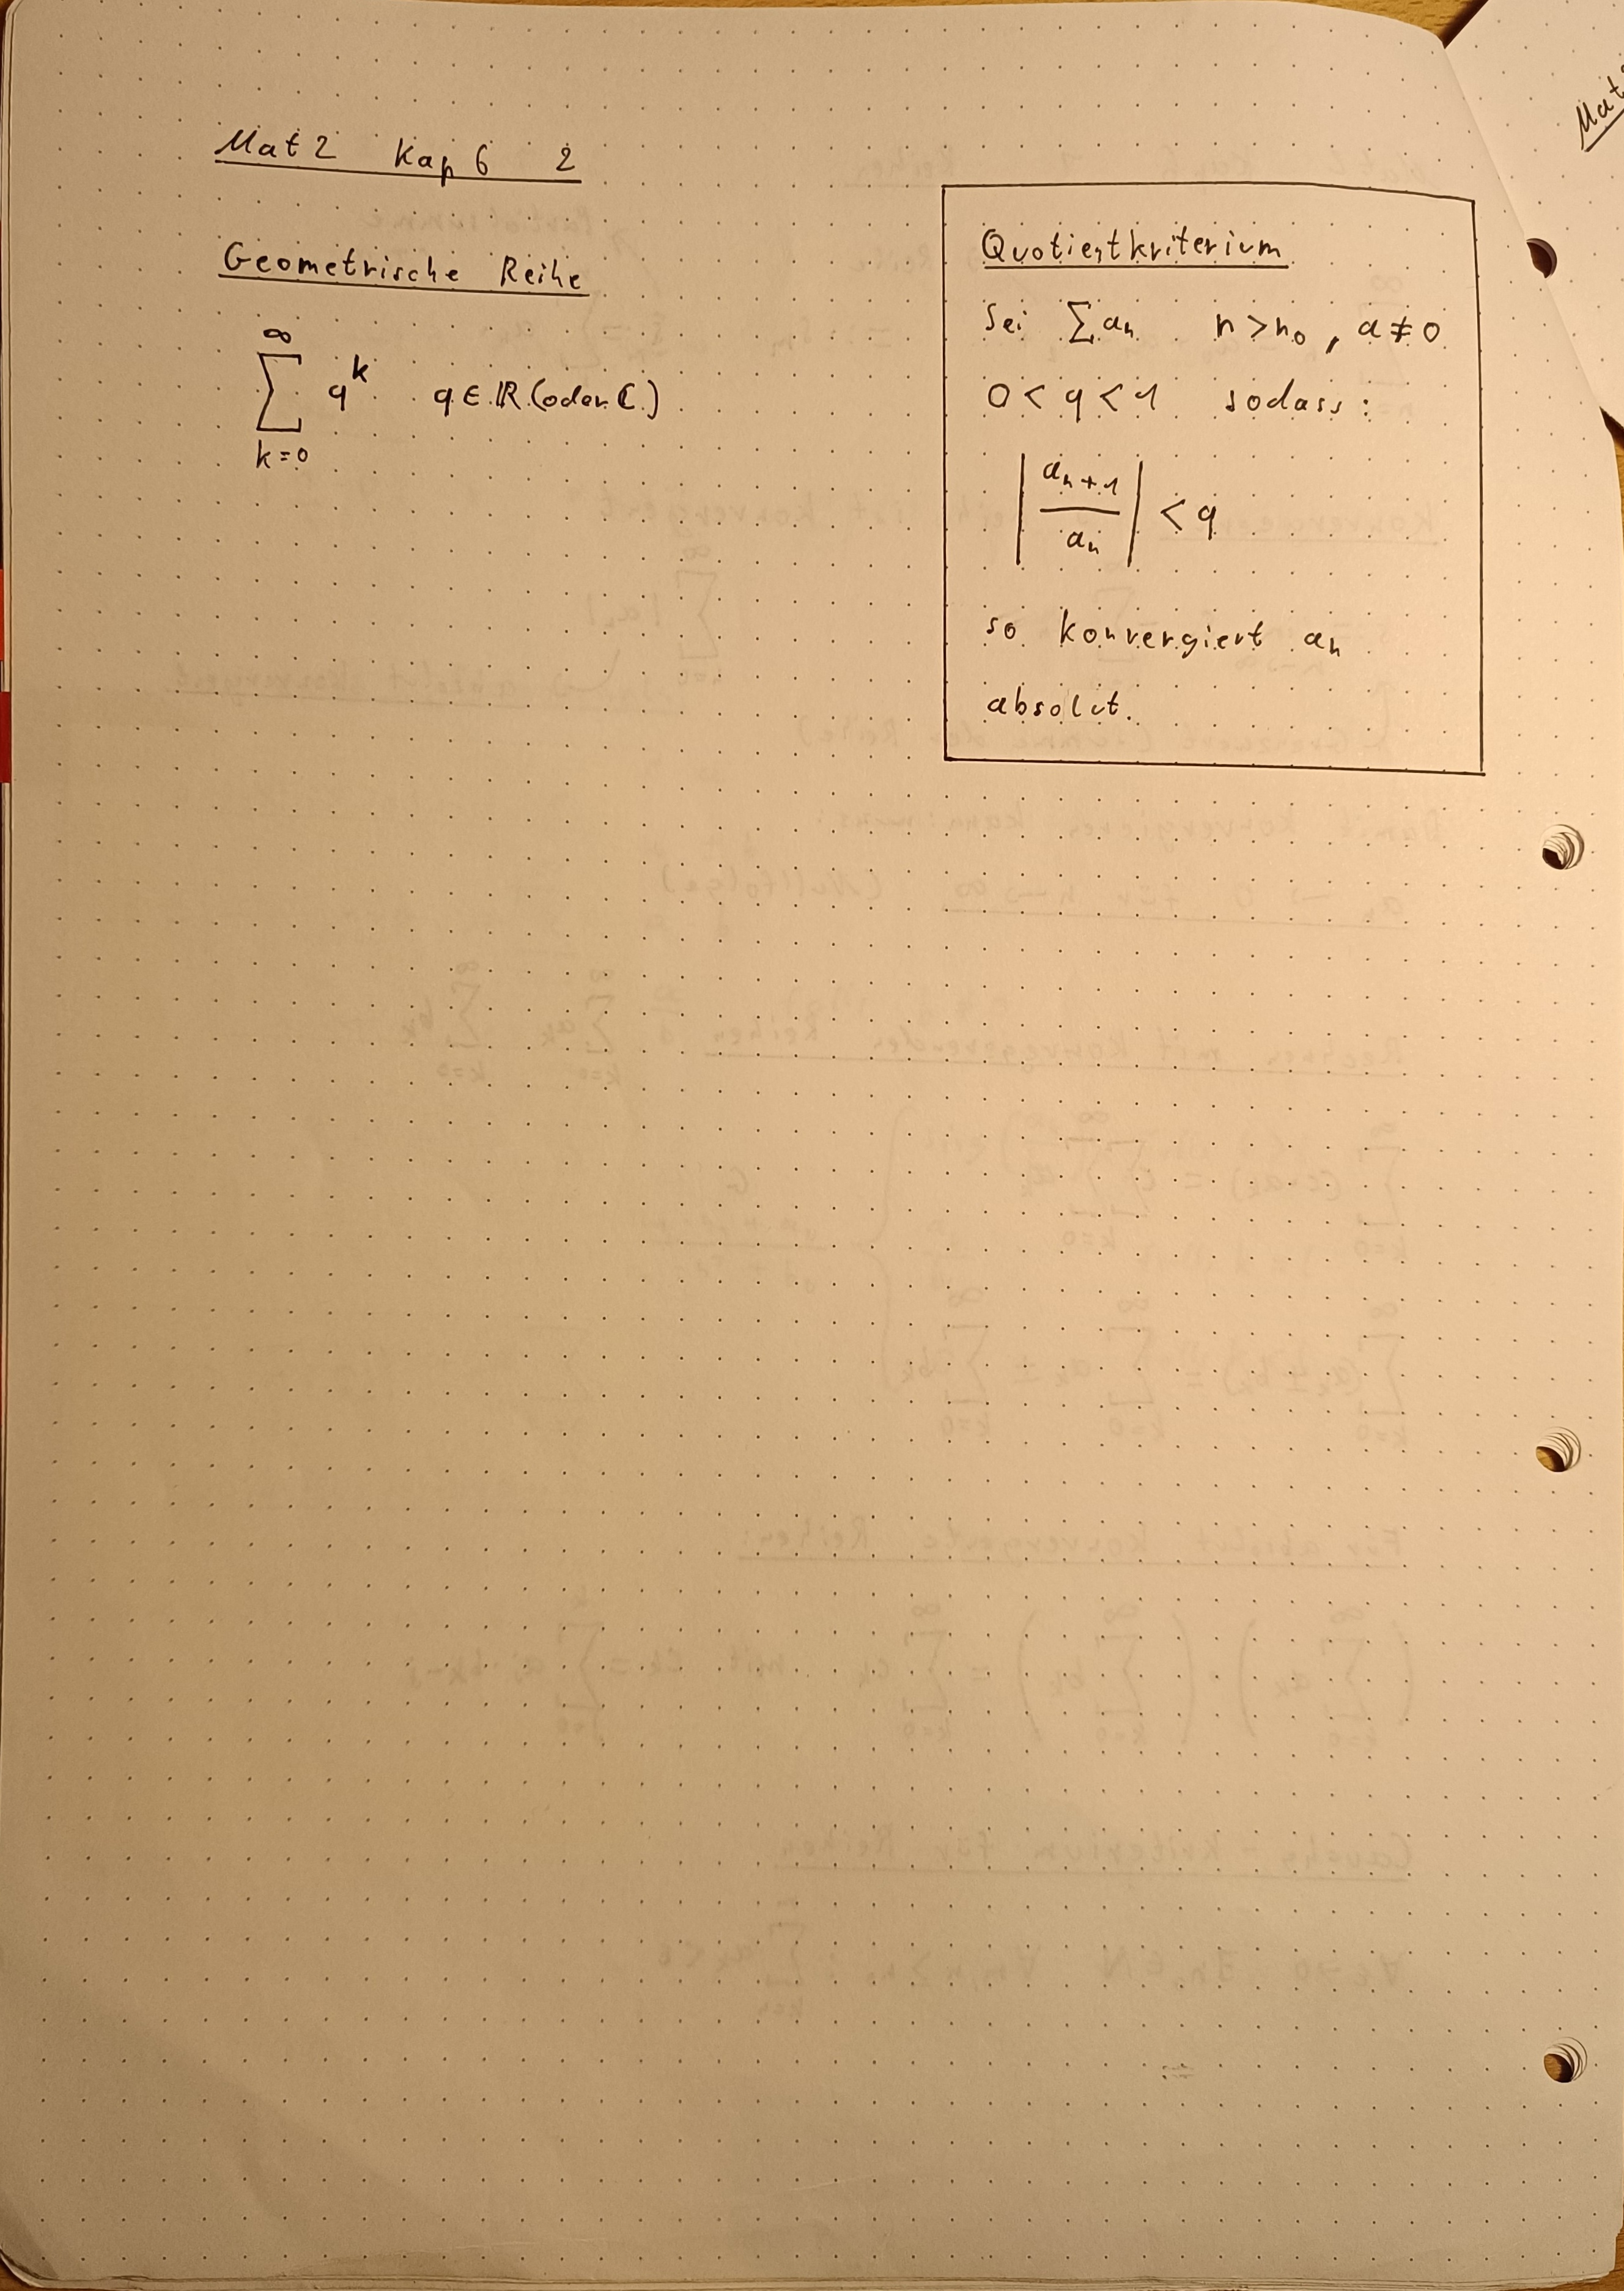 Mat 2 Kap 6 2
Geometrische Reihe
∞
∑ q^k q ∈ ℝ (oder ℂ)
k=0
Quotientkriterium
Sei ∑ a_n n > n_0, a ≠ 0
0 < q < 1 sodass:
| a_{n+1} / a_n | < q
so konvergiert a_n
absolut.
Mat